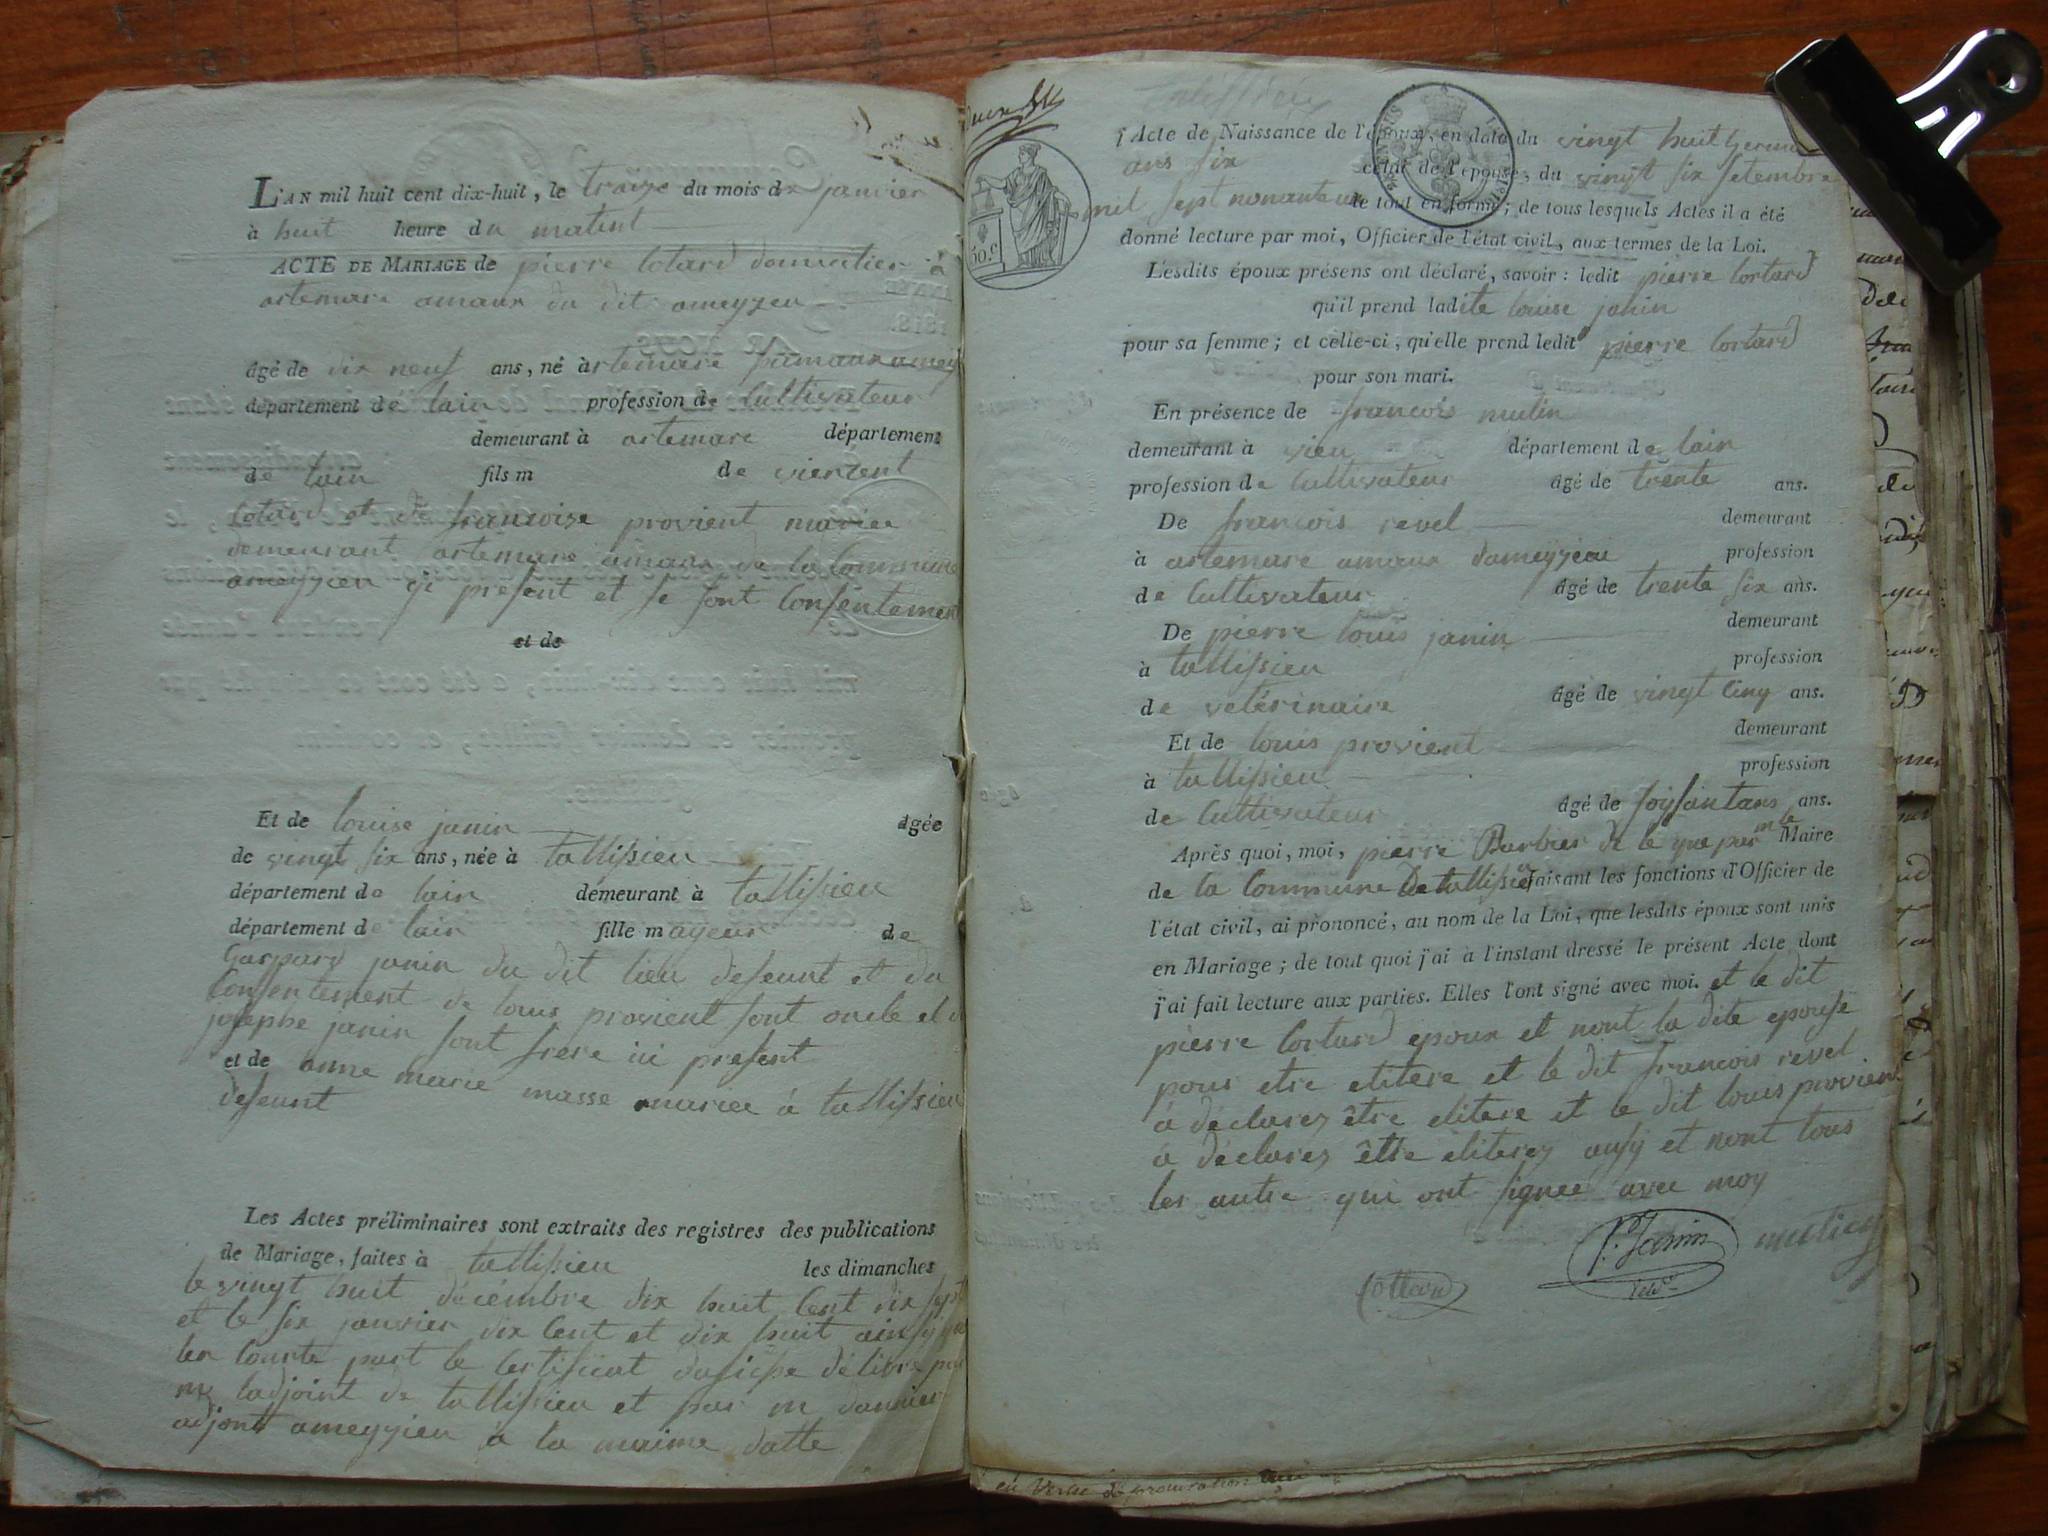 L'AN mil huit cent dix-huit, le traize du mois de janvier
à huit heure du matint
ACTE DE MARIAGE de pierre Cotard domicilier à
artemare amaux du dit ameyzeu
âgé de dix neuf ans, né à artemare
département de lain profession de Cultivateur
demeurant à artemare département
de lain fils m de vientent
Cotard et de francoise provient mariee
demeurant artemare amaux de la Commune
ameyzieu çi présent et se sont Consentement
et de
Et de louise janin agée
de vingt six ans, née à tallissieu
département de lain demeurant à tallissieu
département de lain fille mayeur de
Gaspard janin du dit lieu defeunt et du
Consentement de louis provient sont oncle et d
josephe janin sont frere ici present
et de anne marie masse mariee à tallissieu
defeunt
Les Actes préliminaires sont extraits des registres des publications
de Mariage, faites à tallissieu les dimanches
le vingt huit décémbre dix huit Cent dix sept
et le six janvier dix Cent et dix huit ainsy que
len Conste part le Certificat délibre par
mr ladjoint de tallissieu et par m
adjont ameyzieu à la maime datte
tallissieu
l'Acte de Naissance de l'époux, en date du vingt huit
ans six celui de l'épouse, du vingt six setembre
mil sept nonante un le tout en forme ; de tous lesquels Actes il a été
donné lecture par moi, Officier de l'état civil, aux termes de la Loi.
Lesdits époux présens ont déclaré, savoir : ledit pierre Cortard
qu'il prend ladite louise janin
pour sa femme ; et celle-ci, qu'elle prend ledit pierre Cortard
pour son mari.
En présence de francois mutin
demeurant à vieu département de lain
profession de Cultivateur âgé de trente ans.
De francois revel demeurant
à artemare amaux dameyzieu profession
de Cultivateur âgé de trente six ans.
De pierre louis janin demeurant
à tallissieu profession
de vetérinaire âgé de vingt Cinq ans.
Et de louis provient demeurant
à tallissieu profession
de Cultivateur âgé de soissantans ans.
Après quoi, moi, pierre Barbier Maire
de la Commune De tallissieu faisant les fonctions d'Officier de
l'état civil, ai prononcé, au nom de la Loi, que lesdits époux sont unis
en Mariage ; de tout quoi j'ai à l'instant dressé le présent Acte dont
j'ai fait lecture aux parties. Elles l'ont signé avec moi. et le dit
pierre Cortard epoux et nont la dite epouse
pour etre elitere et le dit francois revel
à déclarez être elitere et le dit louis provient
à déclarez être eliterez aussy et nont tous
les autre qui ont signee avec moy
P. Janin
50. c.